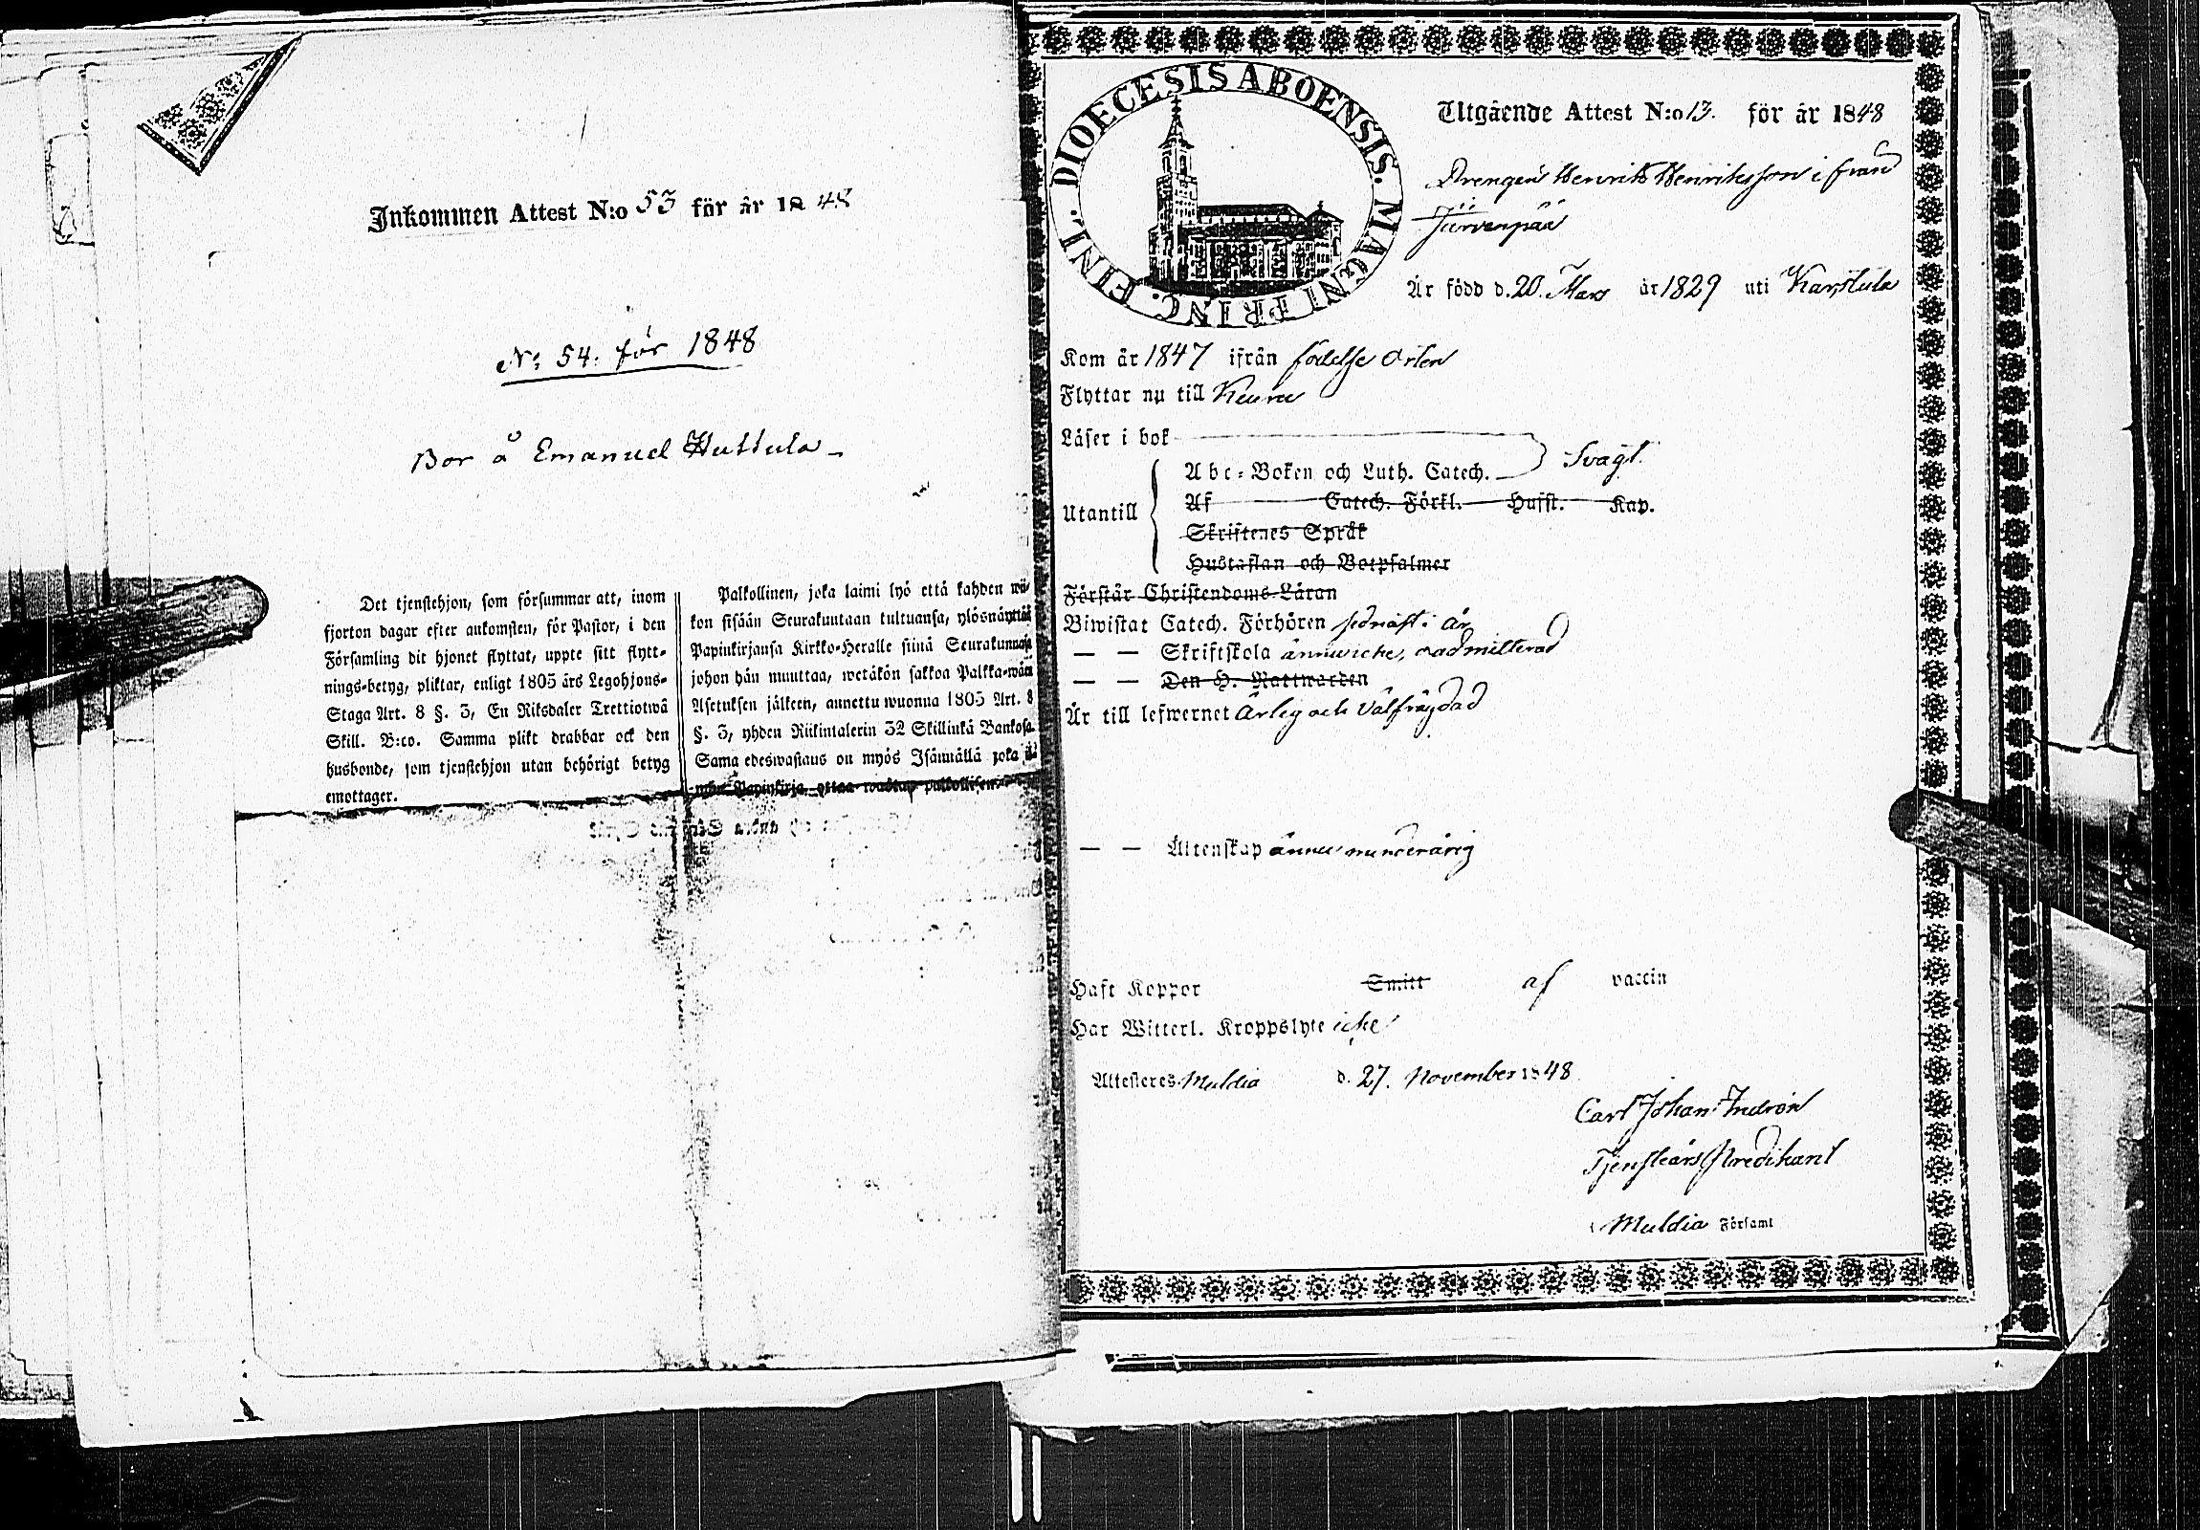 Inkommen Attest N:o 53 för år 1848
N: 54. för 1848
Bor å Emanuel Huttula
Det tjenstehjon, som försummar att, inom
fjorton dagar efter ankomsten, för Pastor, i den
Församling dit hjonet flyttat, uppte sitt flytt-
nings-betyg, pliktar, enligt 1805 års Legohjons-
Staga Art. 8 §. 3, En Riksdaler Trettiotwå
Skill. B:co. Samma plikt drabbar ock den
husbonde, som tjenstehjon utan behörigt betyg
emottager.
Palkollinen, joka laimi lyö että kahden wii-
kon sisään Seurakuntaan tultuansa, ylösnäyttää
Papinkirjansa Kirkko-Heralle siinä Seurakunnasa
johon hän muuttaa, wetäkön sakkoa Palkka-wäen
Asetuksen jälkeen, annettu wuonna 1805 Art. 8
§. 3, yhden Riikintalerin 32 Skillinkä Bankosa.
Sama edeswastaus on myös Isännällä joka
Papinkirja ottaa palkollisen
DIOECESIS ABOENSIS. MAGNI PRINC. FINL.
Utgående Attest N:o 13. för år 1848
Drengen Henrik Henriksson ifrån
Järvenpää
Är född d. 20. Mars år 1829 uti Karstula
Kom år 1847 ifrån födelse orten
Flyttar nu till Keuru
Läser i bok
Abc-Boken och Luth. Catech. Svagt.
Utantill
Af Catech. Förkl. Husst. Kap.
Skriftenes Språk
Hustaflan och Botpsalmer
Förstår Christendoms-Läran
Biwistat Catech. Förhören sednast i år
— — Skriftskola ännu icke, oadmitterad
— — Den H. Nattwarden
Är till lefwernet ärlig och välfrägdad
— — Äktenskap ännu minderårig
Haft Koppor Smitt af vaccin
Har Witterl. Kroppslyte icke
Attesteres Muldia d. 27. November 1848
Carl Johan
Tjensteårs Predikant
i Muldia Församl